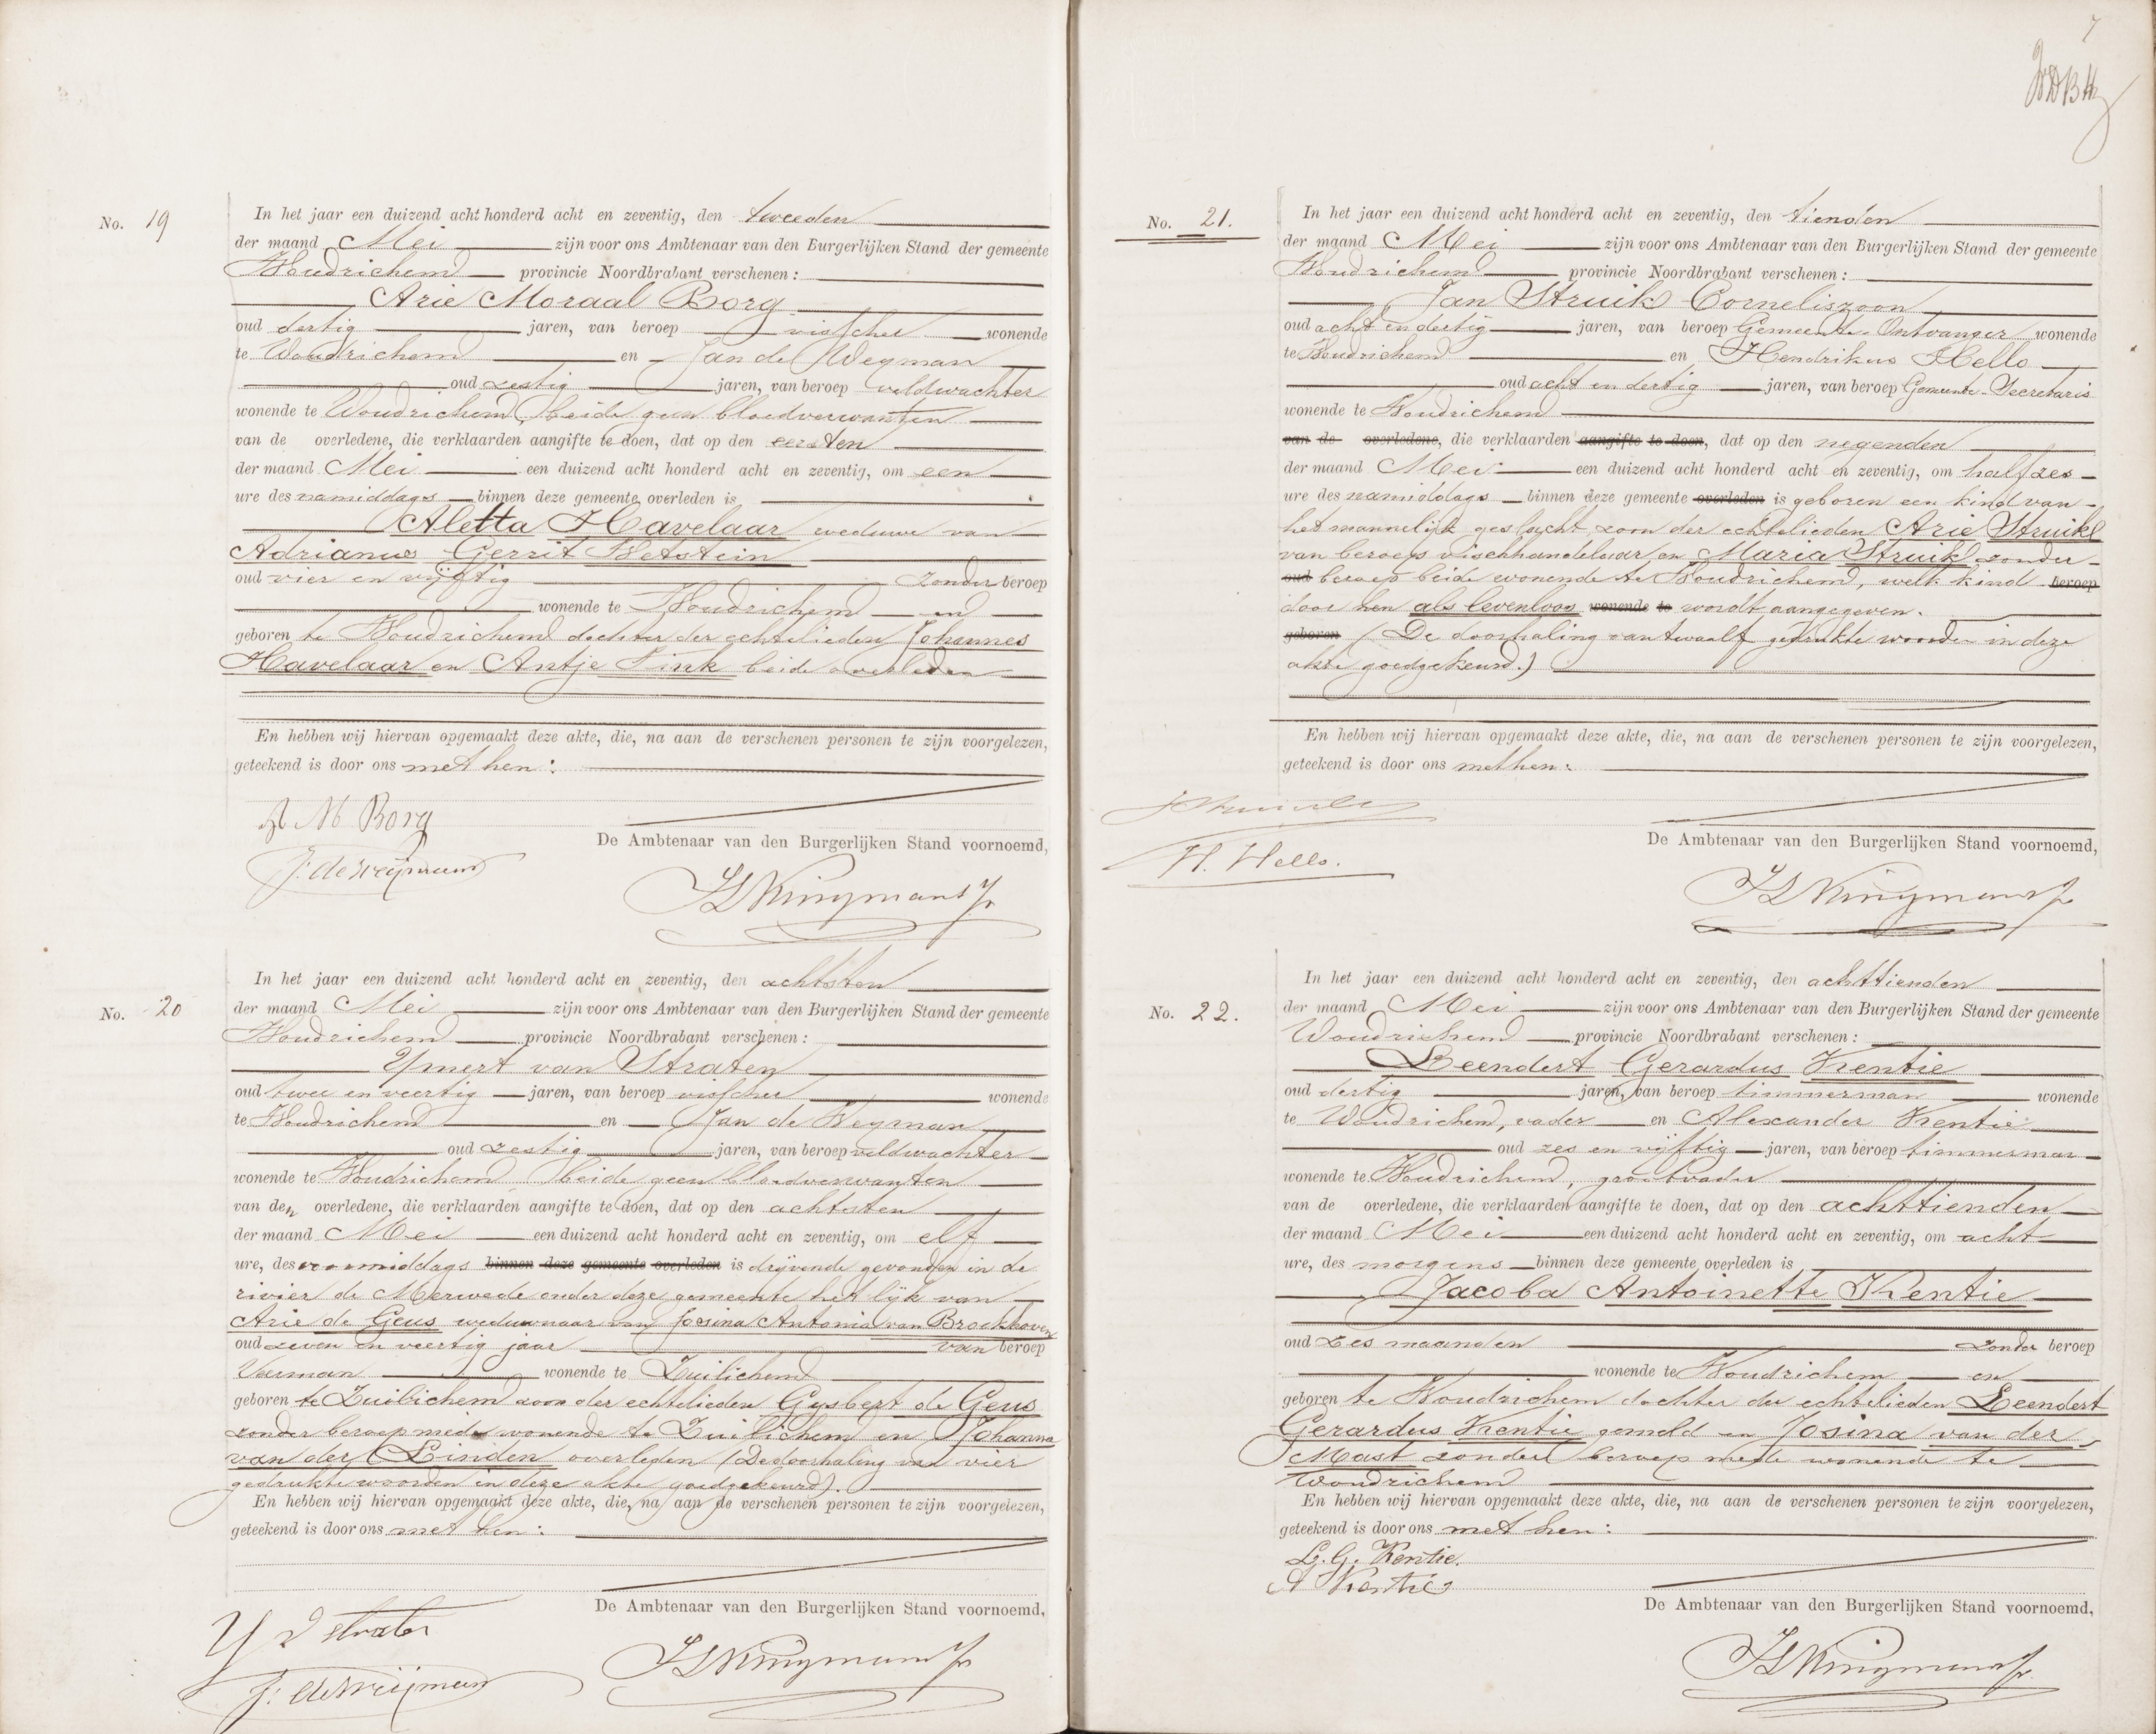 No. 19
In het jaar een duizend acht honderd acht en zeventig, den tweeden
der maand Mei zijn voor ons Ambtenaar van den Burgerlijken Stand der gemeente
Woudrichem provincie Noordbrabant verschenen:
Arie Moraal Borg
oud dertig jaren, van beroep visscher wonende
te Woudrichem en Jan de Wegman
oud zestig jaren, van beroep veldwachter
wonende te Woudrichem, beide geen bloedverwanten
van de overledene, die verklaarden aangifte te doen, dat op den eersten
der maand Mei een duizend acht honderd acht en zeventig, om een
ure des namiddags binnen deze gemeente overleden is
Aletta Havelaar weduwe van
Adrianus Gerrit Betstein
oud vier en vijftig Zonder beroep
wonende te Woudrichem en
geboren te Woudrichem dochter der echtelieden Johannes
Havelaar en Antje Fink beide overleden
En hebben wij hiervan opgemaakt deze akte, die, na aan de verschenen personen te zijn voorgelezen,
geteekend is door ons met hen:
A M Borg
De Ambtenaar van den Burgerlijken Stand voornoemd,
J. de Weijman
No. 20
In het jaar een duizend acht honderd acht en zeventig, den achtsten
der maand Mei zijn voor ons Ambtenaar van den Burgerlijken Stand der gemeente
Woudrichem provincie Noordbrabant verschenen:
Ymert van Straten
oud twee en veertig jaren, van beroep visscher wonende
te Woudrichem en Jan de Wegman
oud zestig jaren, van beroep veldwachter
wonende te Woudrichem beide geen bloedverwanten
van den overledene, die verklaarden aangifte te doen, dat op den achtsten
der maand Mei een duizend acht honderd acht en zeventig, om elf
ure, des voormiddags binnen deze gemeente overleden is drijvende gevonden in de
rivier de Merwede onder deze gemeente het lijk van
Arie de Geus weduwnaar van Josina Antonia van Broekhoven
oud zeven en veertig jaar van beroep
Veerman wonende te Zuilichem
geboren te Zuilichem zoon der echtelieden Gysbert de Geus
zonder beroep mede wonende te Zuilichem en Johanna
van der Linden overleden (De doorhaling van vier
gedrukte woorden in deze akte goedgekeurd).
En hebben wij hiervan opgemaakt deze akte, die, na aan de verschenen personen te zijn voorgelezen,
geteekend is door ons met hen:
De Ambtenaar van den Burgerlijken Stand voornoemd,
Y v Straten
J. de Weijman
7
No. 21.
In het jaar een duizend acht honderd acht en zeventig, den tienden
der maand Mei zijn voor ons Ambtenaar van den Burgerlijken Stand der gemeente
Woudrichem provincie Noordbrabant verschenen:
Jan Struik Corneliszoon
oud acht en dertig jaren, van beroep Gemeente-Ontvanger wonende
te Woudrichem en Hendrikus Hello
oud acht en dertig jaren, van beroep Gemeente-Secretaris
wonende te Woudrichem
van de overledene, die verklaarden aangifte te doen, dat op den negenden
der maand Mei een duizend acht honderd acht en zeventig, om half zes
ure des namiddags binnen deze gemeente overleden is geboren een kind van
het mannelijk geslacht, zoon der echtelieden Arie Struik
van beroep vischhandelaar en Maria Struik zonder
oud beroep beide wonende te Woudrichem, welk kind beroep
door hen als levenloos wonende te wordt aangegeven.
geboren (De doorhaling van twaalf gedrukte woorden in deze
akte goedgekeurd.)
En hebben wij hiervan opgemaakt deze akte, die, na aan de verschenen personen te zijn voorgelezen,
geteekend is door ons met hen:
J Struik
De Ambtenaar van den Burgerlijken Stand voornoemd,
H. Hello.
No. 22.
In het jaar een duizend acht honderd acht en zeventig, den achttienden
der maand Mei zijn voor ons Ambtenaar van den Burgerlijken Stand der gemeente
Woudrichem provincie Noordbrabant verschenen:
Leendert Gerardus Kentie
oud dertig jaren, van beroep timmerman wonende
te Woudrichem, vader en Alexander Kentie
oud zes en vijftig jaren, van beroep timmerman
wonende te Woudrichem, grootvader
van de overledene, die verklaarden aangifte te doen, dat op den achttienden
der maand Mei een duizend acht honderd acht en zeventig, om acht
ure, des morgens binnen deze gemeente overleden is
Jacoba Antoinette Kentie
oud Zes maanden zonder beroep
wonende te Woudrichem en
geboren te Woudrichem dochter der echtelieden Leendert
Gerardus Kentie gemeld en Josina van der
Mast zonder beroep mede wonende te
Woudrichem
En hebben wij hiervan opgemaakt deze akte, die, na aan de verschenen personen te zijn voorgelezen,
geteekend is door ons met hen:
L. G. Kentie.
A Kentie
De Ambtenaar van den Burgerlijken Stand voornoemd,